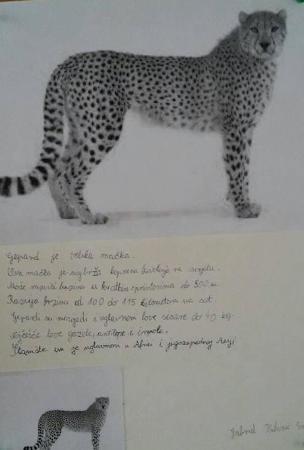 Gepard je velika mačka.
Ova mačka je najbrža kopnena životinja na svijetu.
Može trčati brzinom u kratkim sprintovima do 500 m.
Razvija brzinu od 110 do 115 kilometara na sat.
Gepardi su mesojedi i uglavnom love sisare do 40 kg.
Najčešće love gazele, antilope i impale.
Stanište im je uglavnom u Africi i jugozapadnoj Aziji